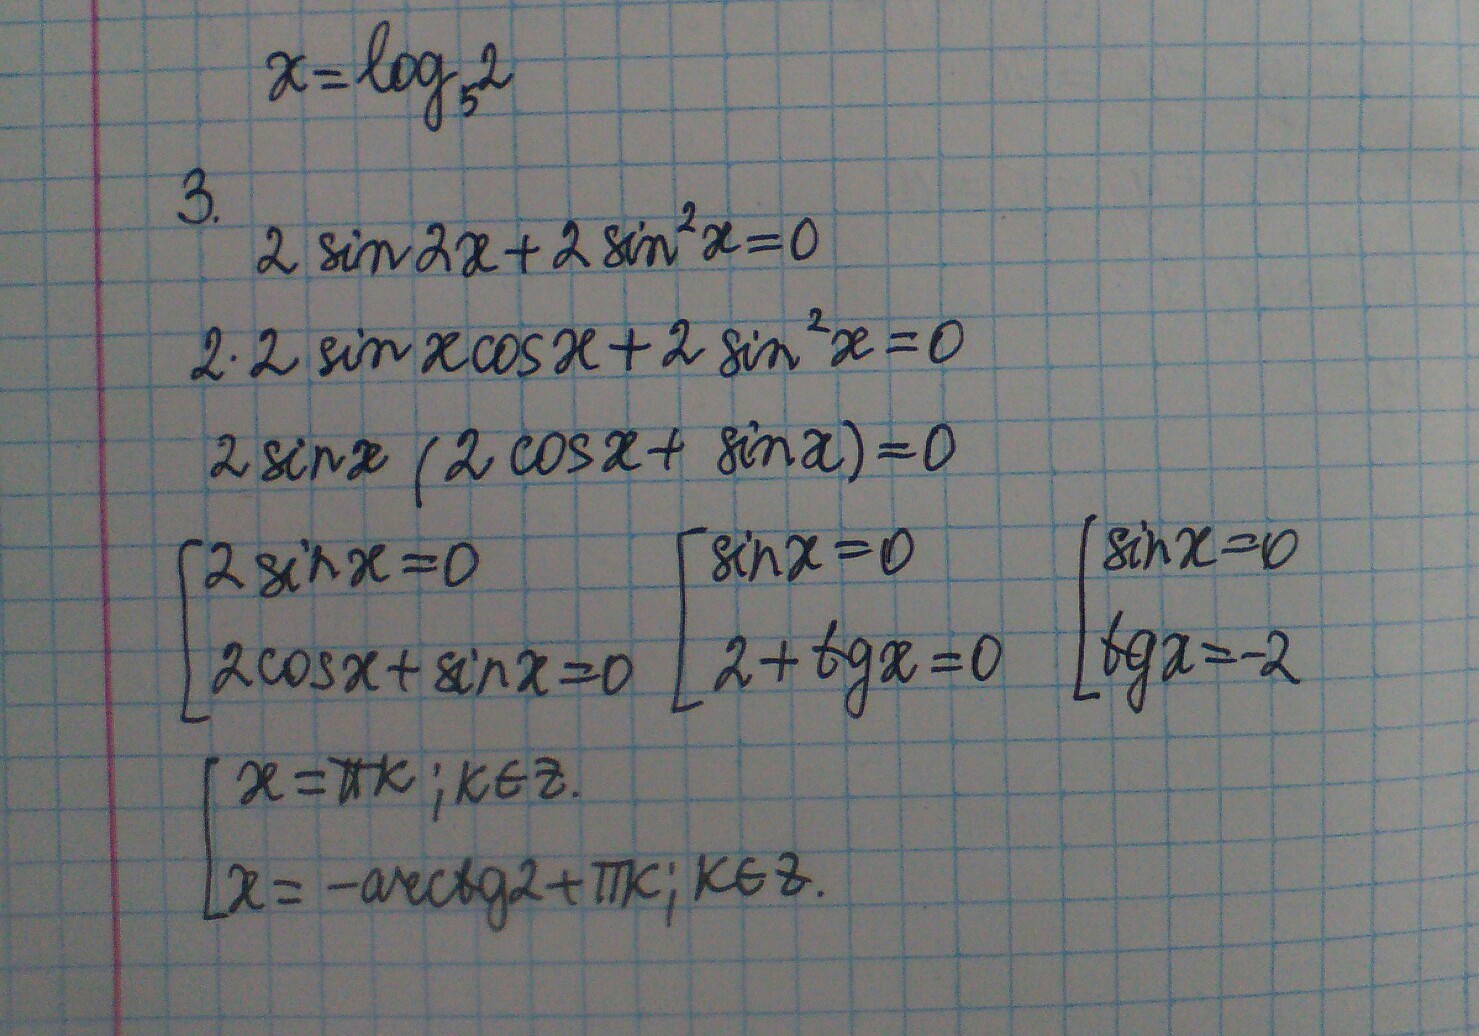 x = log₅2
3.
2 sin 2x + 2 sin²x = 0
2·2 sin x cos x + 2 sin²x = 0
2 sin x (2 cos x + sin x) = 0
[ 2 sin x = 0 [ sin x = 0 [ sin x = 0
2 cos x + sin x = 0 2 + tg x = 0 tg x = -2
[ x = πk; k ∈ Z.
x = -arctg 2 + πk; k ∈ Z.